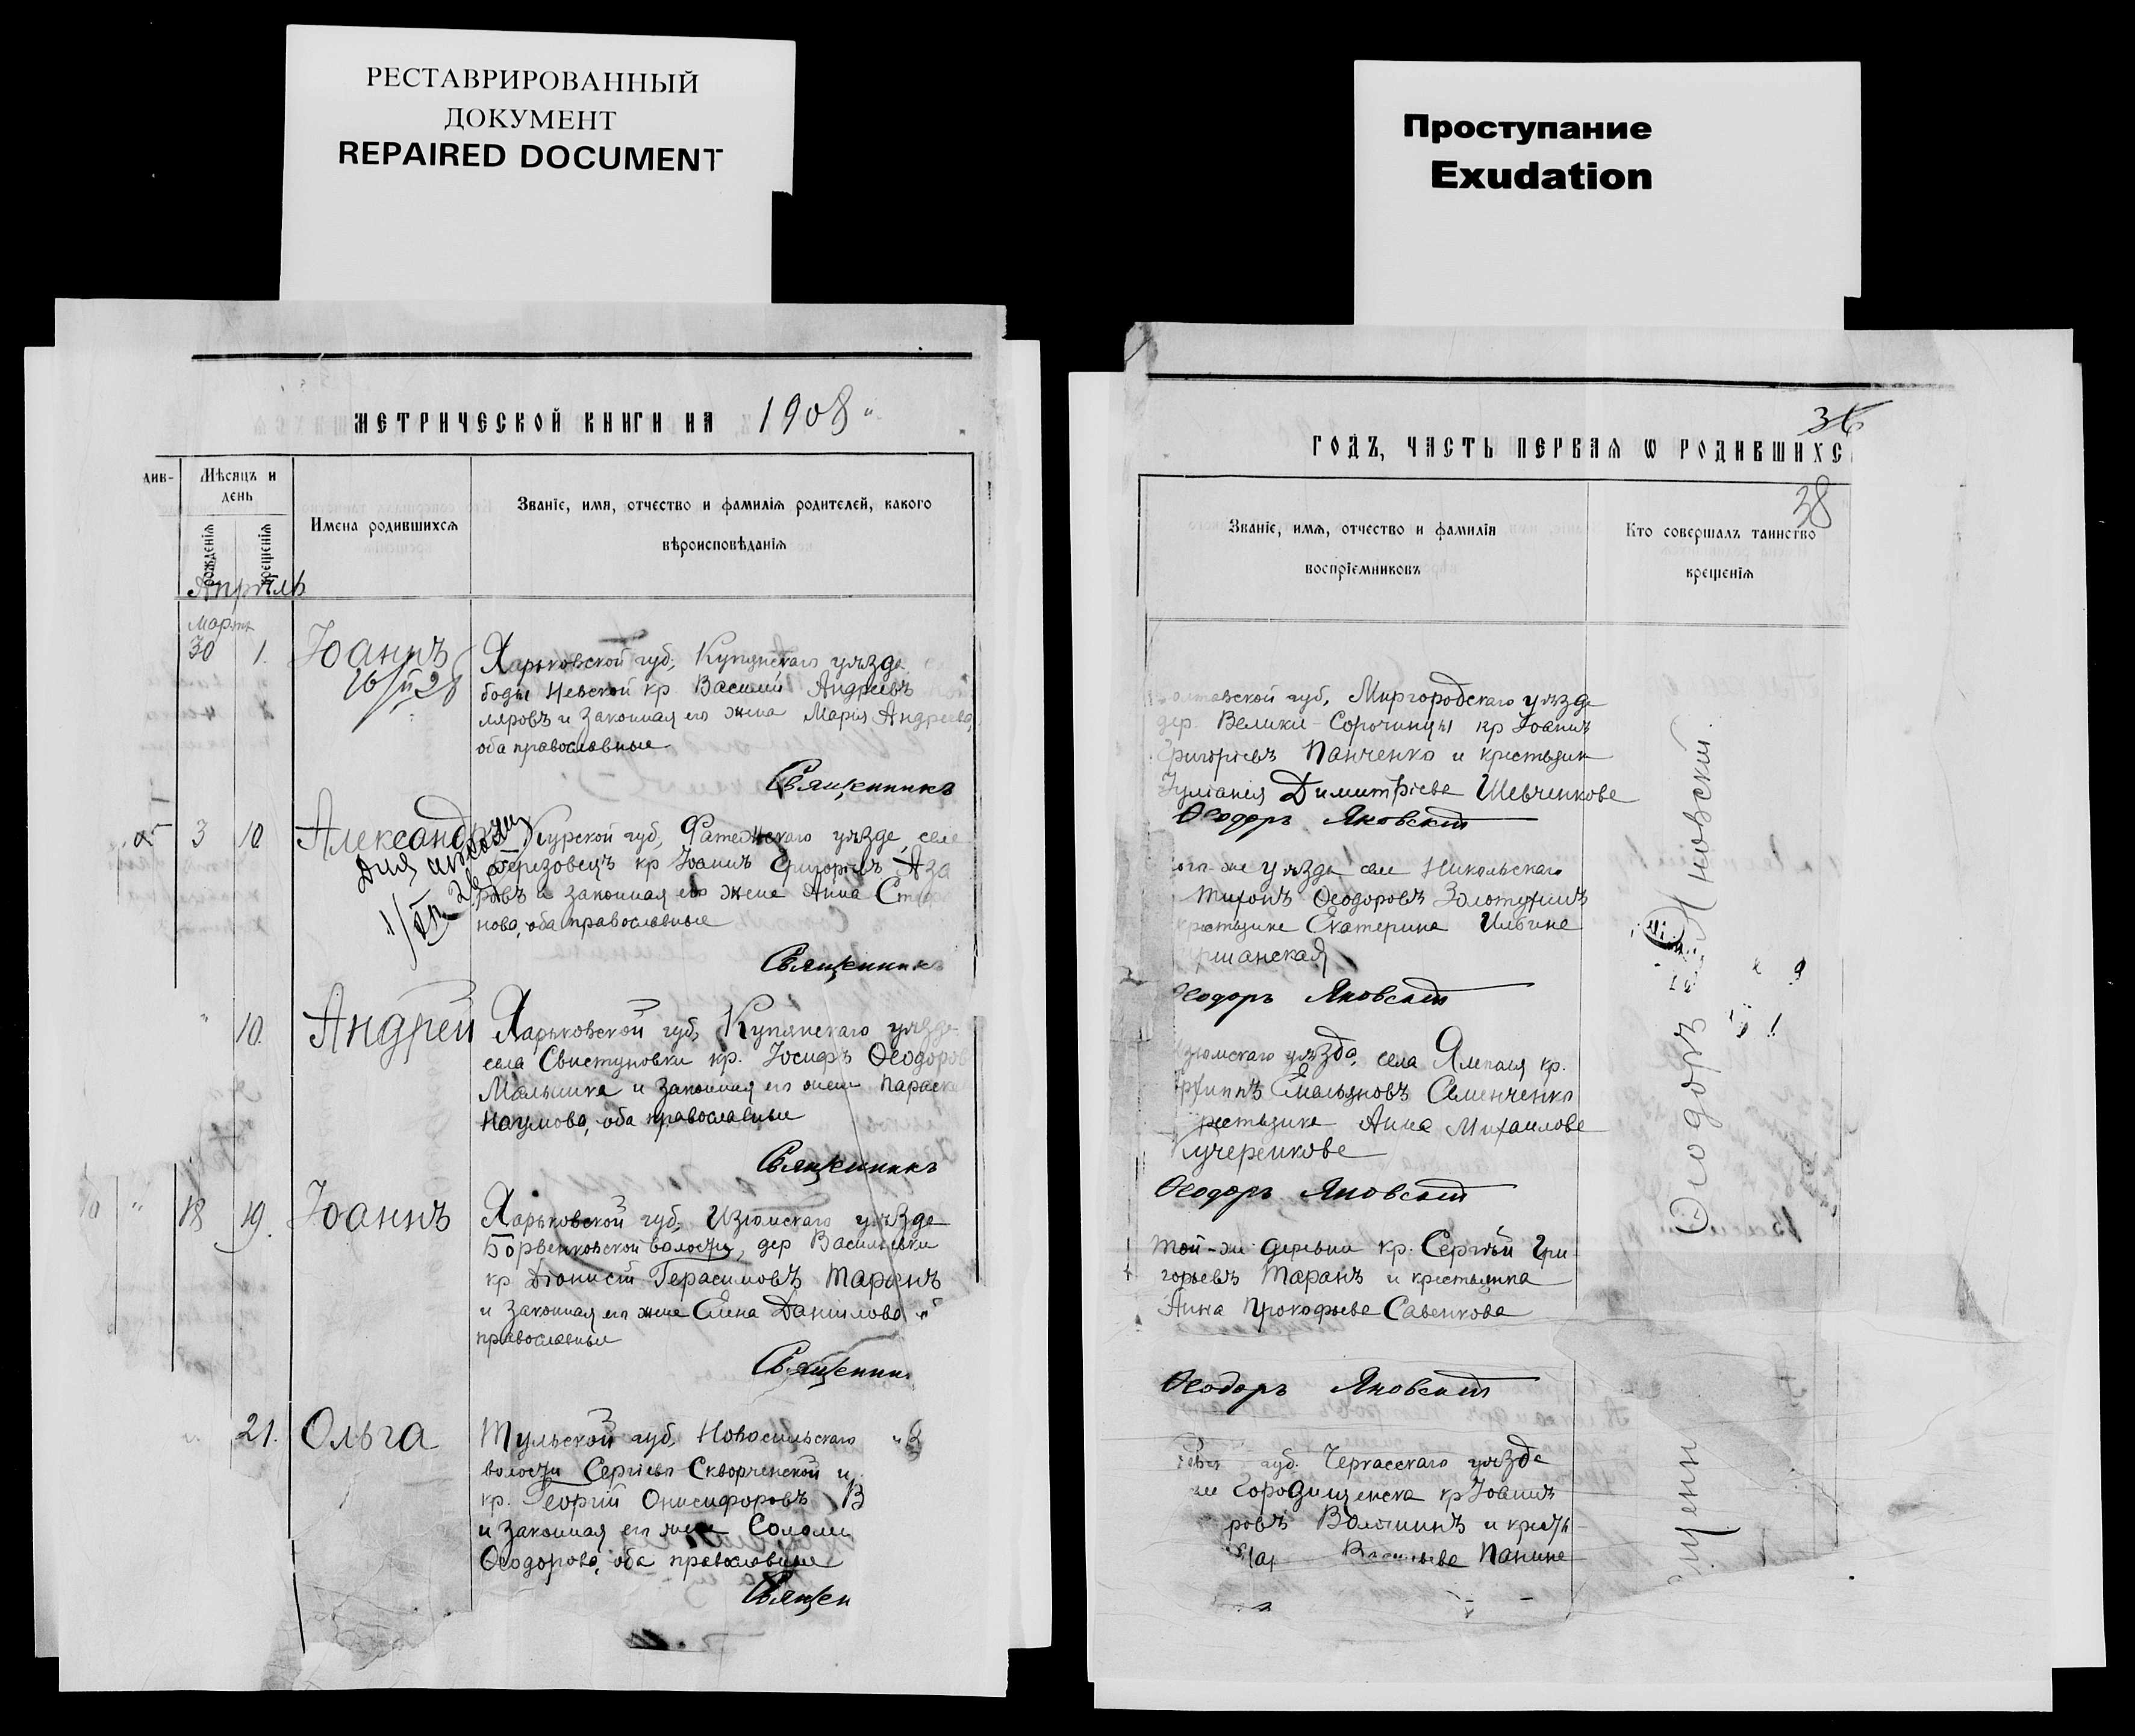 РЕСТАВРИРОВАННЫЙ
ДОКУМЕНТ
REPAIRED DOCUMENT
Проступание
Exudation
МЕТРИЧЕСКОЙ КНИГИ НА 1908
див-
Мѣсяцъ и
день
рожденія
крещенія
Имена родившихся
Званіе, имя, отчество и фамилія родителей, какого
вѣроисповѣданія
Апрѣль
Марта
30 1. Іоаннъ
Харьковской губ, Купянскаго уѣзда
боды Невской кр Василій Андреевъ
ляровъ и законная его жена Марія Андреева,
оба православные
Священникъ
3 10 Александръ
Курской губ, Фатежскаго уѣзда, села
Березовецъ кр Іоаннъ Григорьевъ Аза
ровъ и законная его жена Анна
нова, оба православные
Священникъ
" 10. Андрей
Харьковской губ, Купянскаго уѣзда
села Свистуновки кр. Іосифъ Ѳеодоров
Мальшика и законная его жена Параске
Наумова, оба православные
Священникъ
" 18 19. Іоаннъ
Харьковской губ, Изюмскаго уѣзда
Борвенковской волости, дер Васильевки
кр Діонисій Герасимовъ Таранъ
и законная его жена Елена Данилова
православные
Священник
21. Ольга
Тульской губ, Новосильскаго
волости Сергіево Скворченской
кр. Георгій Онисифоровъ В
и законная его жена Соломи
Ѳеодорова, оба православные
Священ
ГОДЪ, ЧАСТЬ ПЕРВАЯ Ѡ РОДИВШИХС
36
38
Званіе, имя, отчество и фамилія
воспріемниковъ
Кто совершалъ таинство
крещенія
олтавской губ, Миргородскаго уѣзда
дер. Велики-Сорочинцы кр Іоаннъ
Григорьевъ Панченко и крестьянк
Іуліанія Димитріева Шевченкова
Ѳеодоръ Яновскій
ого-же уѣзда села Никольскаго
Тихонъ Ѳеодоровъ Золотухинъ
крестьянка Екатерина Ильина
Ѳеодоръ Яновскій
зюмскаго уѣзда, села Ямполя кр.
Емельяновъ Семенченко
рестьянка Анна Михаилова
Кучеренкова
Ѳеодоръ Яновскій
Той-же деревни кр. Сергѣй Гри-
горьевъ Таранъ и крестьянка
Анна Прокофьева Савенкова
Ѳеодоръ Яновскій
губ. Черкасскаго уѣзда
Городищенска кр Іоаннъ
ровъ Волошинъ и кресть
Васильева Панина
щенн
Ѳеодоръ Яновскій.